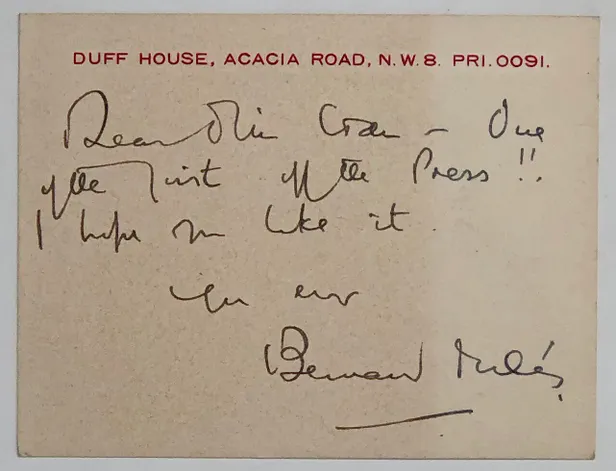 DUFF HOUSE, ACACIA ROAD, N.W.8. PRI. 0091.
Dear Miss – One
of the first off the Press!!
I hope you like it.
Yrs ever
Bernard Miles